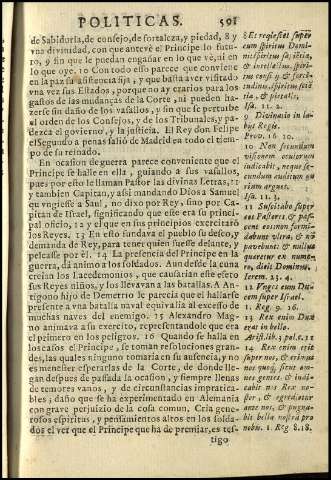 POLITICAS. 501
de Sabiduria, de consejo, de fortaleza, y piedad, 8 y
vna divinidad, con que antevè el Principe lo futu-
ro, 9 sin que le puedan engañar en lo que vè, ni en
lo que oye. 10 Con todo esso parece que conviene
en la paz su assistencia fija, y que basta aver visitado
vna vez sus Estados, porque no ay erarios para los
gastos de las mudanças de la Corte, ni pueden ha-
zerse sin daño de los vasallos, y sin que se perturbe
el orden de los Consejos, y de los Tribunales, y pa-
dezca el govierno, y la justicia. El Rey don Felipe
el Segundo apenas saliò de Madrid en todo el tié-
po de su reinado.
En ocasion de guerra parece conveniente que el
Principe se halle en ella, guiando a sus vasallos,
pues por esto le llaman Pastor las divinas Letras, 11
y tambien Capitan, y assi mandando Dios a Samuel
que vngiesse a Saul, no dixo por Rey, sino por Ca-
pitan de Israel, significando que este era su princi-
pal oficio, 12 y el que en sus principios exercitaron
los Reyes. 13 En esto fundava el pueblo su deseo, y
demanda de Rey, para tener quien fuesse delante, y
pelease por èl. 14 La presencia del Principe en la
guerra, dà animo a los soldados. Aun desde la cuna
creían los Lacedemonios, que causarian este efeto
sus Reyes niños, y los llevavan a las batallas. A An-
tigono hijo de Demetrio le parecia que el hallarse
presente a vna batalla naval equivalia al excesso de
muchas naves del enemigo. 15 Alexandro Mag-
no animava a su exercito, representandole que era
el primero en los peligros. 16 Quando se halla en
los casos el Principe, se toman resoluciones gran-
des, las quales ninguno tomaria en su ausencia, y no
es menester esperarlas de la Corte, de donde lle-
gan despues de passada la ocasion, y siempre llenas
de temores vanos, y de circunstancias impratica-
bles; daño que se ha experimentado en Alemania
con grave perjuizio de la cosa comun. Cria gene-
rosos espiritus, y pensamientos altos en los solda-
dos el ver que el Principe que ha de premiar, es tes-
tigo
8 Et requiescet super
eum spiritus Domi-
ni: spiritus sa-
& intellectus, spiri-
tus consilij & forti-
tudinis, spiritus scien-
tiæ, & pietatis.
Isa. 11. 2.
9 Divinatio in la-
bijs Regis.
Prov. 16. 10.
10 Non secundum
visionem oculorum
iudicabit, neque se-
cundum auditum au-
rium arguet.
Isa. 11. 3.
11 Suscitabo super
eos Pastores, & pas-
cent eos: non formi-
dabunt vltra, & non
pavebunt: & nullus
quæretur ex nume-
ro, dicit Dominus.
Ierem. 23. 4.
12 Vnges eum Du-
cem super Israel.
1. Reg. 9. 16.
13 Rex enim Dux
erat in bello.
Arist. lib. 3. pol. c. 11
14 Rex enim erit
super nos, & erimus
nos quoq; sicut om-
nes gentes: & iudi-
cabit nos Rex nos-
ter, & egredietur
ante nos, & pugna-
bit bella nostra pro
nobis. 1. Reg. 8. 18.